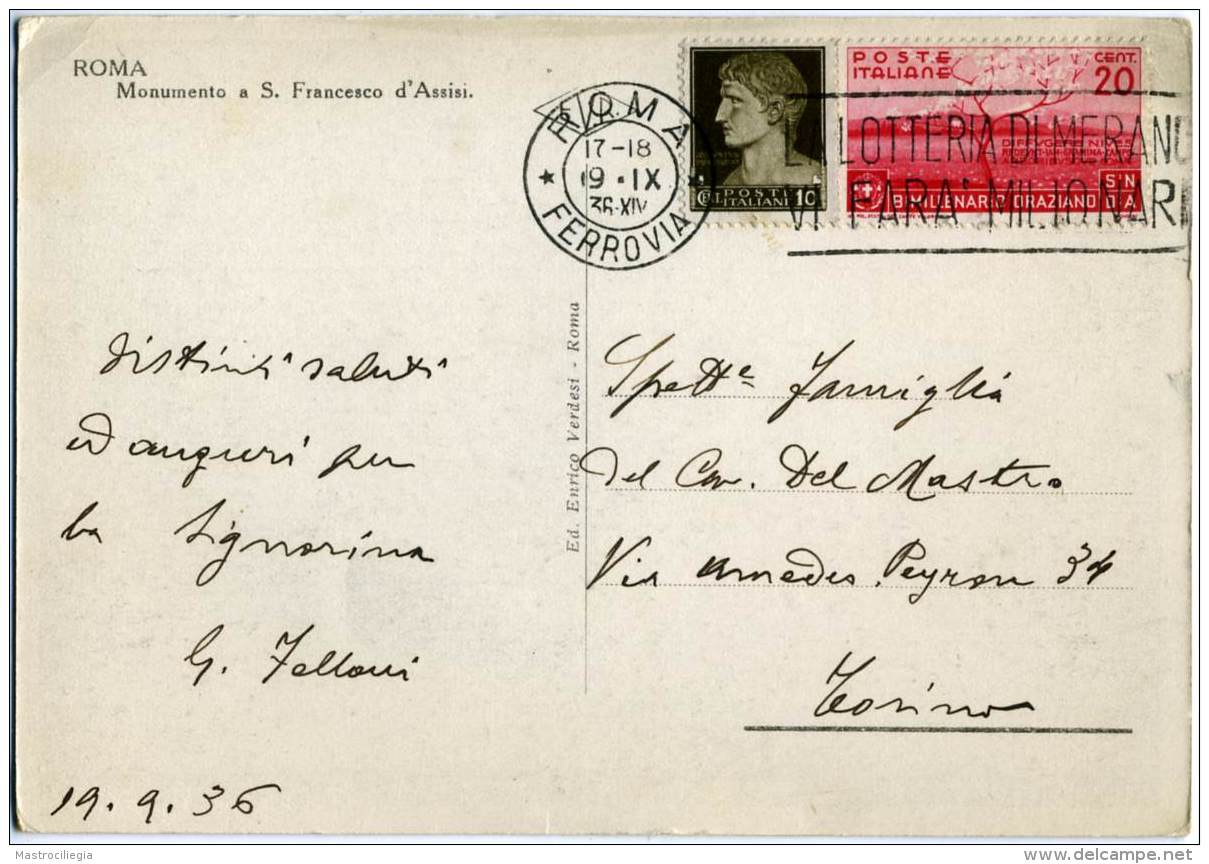 ROMA
Monumento a S. Francesco d'Assisi.
ROMA
17-18
19 · IX
36·XIV
FERROVIA
POSTE
ITALIANE
10
POSTE
ITALIANE
CENT.
20
BIMILLENARIO ORAZIANO
LA LOTTERIA DI MERANO
VI FARA' MILIONARI
Distinti saluti
ed auguri per
la Signorina
G. Felloni
19.9.36
Ed. Enrico Verdesi - Roma
Spett.e Famiglia
del Cav. Del Mastro
Via Amedeo Peyron 34
Torino
Mastrociliegia
delcampe.net